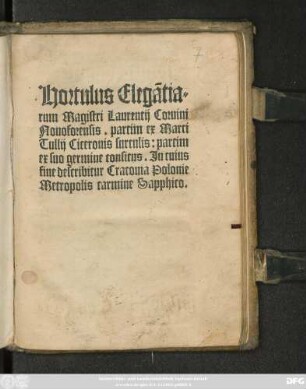 Hortulus Elegãtia-
rum Magistri Laurentij Coruini
Nouoforensis. partim ex Marci
Tullij Ciceronis surculis: partim
ex suo germine consitus. In cuius
fine describitur Cracouia Polonie
Metropolis carmine Sapphico.